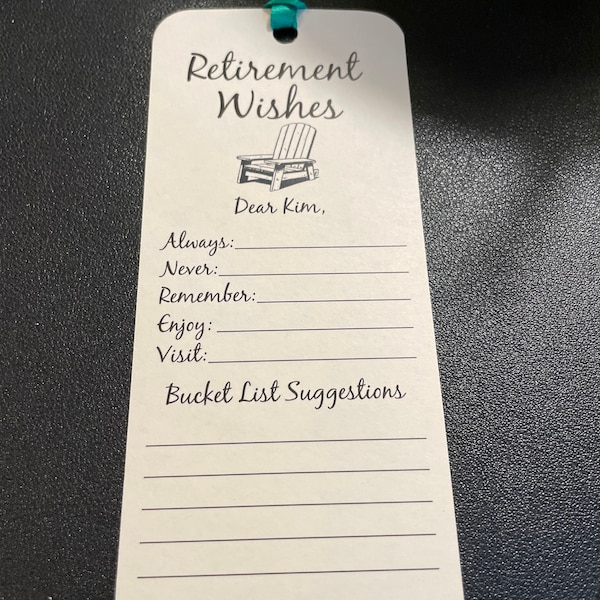 Retirement
Wishes
Dear Kim,
Always:
Never:
Remember:
Enjoy:
Visit:
Bucket List Suggestions